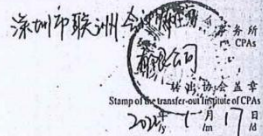 深圳市联洲会计师事务所
有限公司
事务所
CPAs
转出协会盖章
Stamp of the transfer-out Institute of CPAs
2024年1月17日
/y /m /d